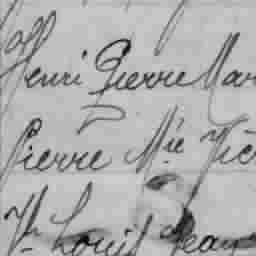 Henri Pierre Mar
Pierre Mie Vic
Louis Jean